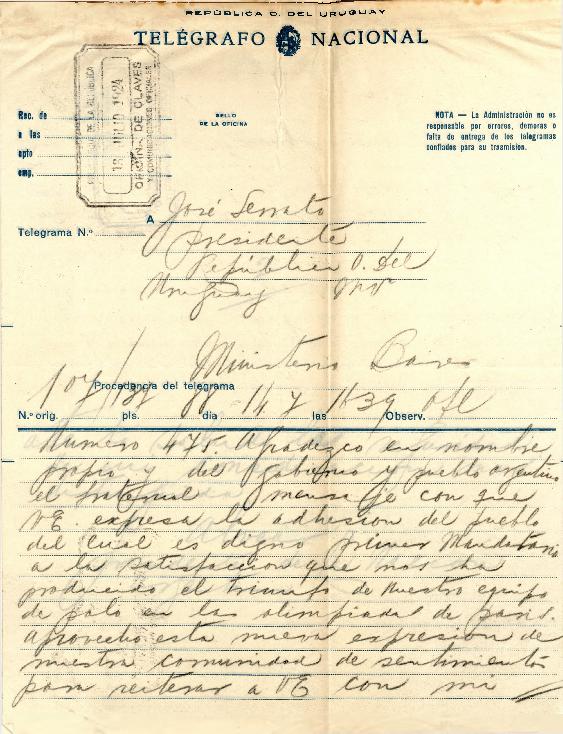 REPÚBLICA O. DEL URUGUAY
TELÉGRAFO NACIONAL
DE LA REPÚBLICA
JULIO 1924
OFICINA DE CLAVES
Y COMUNICACIONES OFICIALES
Rec. de
a las
apto
emp.
SELLO
DE LA OFICINA
NOTA — La Administración no es
responsable por errores, demoras o
falta de entrega de los telegramas
confiados para su trasmision.
A José Serrato
Telegrama N.º Presidente
República O. del
Uruguay Mvo
Ministerio Baires
Procedencia del telegrama
N.º orig. 107/132 pls. 88 dia 14 7 las 1839 Observ. Ofl
Numero 475. Agradezco en nombre
propio y del gobierno y pueblo argentino
el fraternal mensaje con que
VE. expresa la adhesion del pueblo
del cual es digno primer Mandatario
a la satisfaccion que nos ha
producido el triunfo de nuestro equipo
de polo en las olimpiadas de paris.
Aprovecho esta nueva expresion de
nuestra comunidad de sentimientos
para reiterar a VE con mi